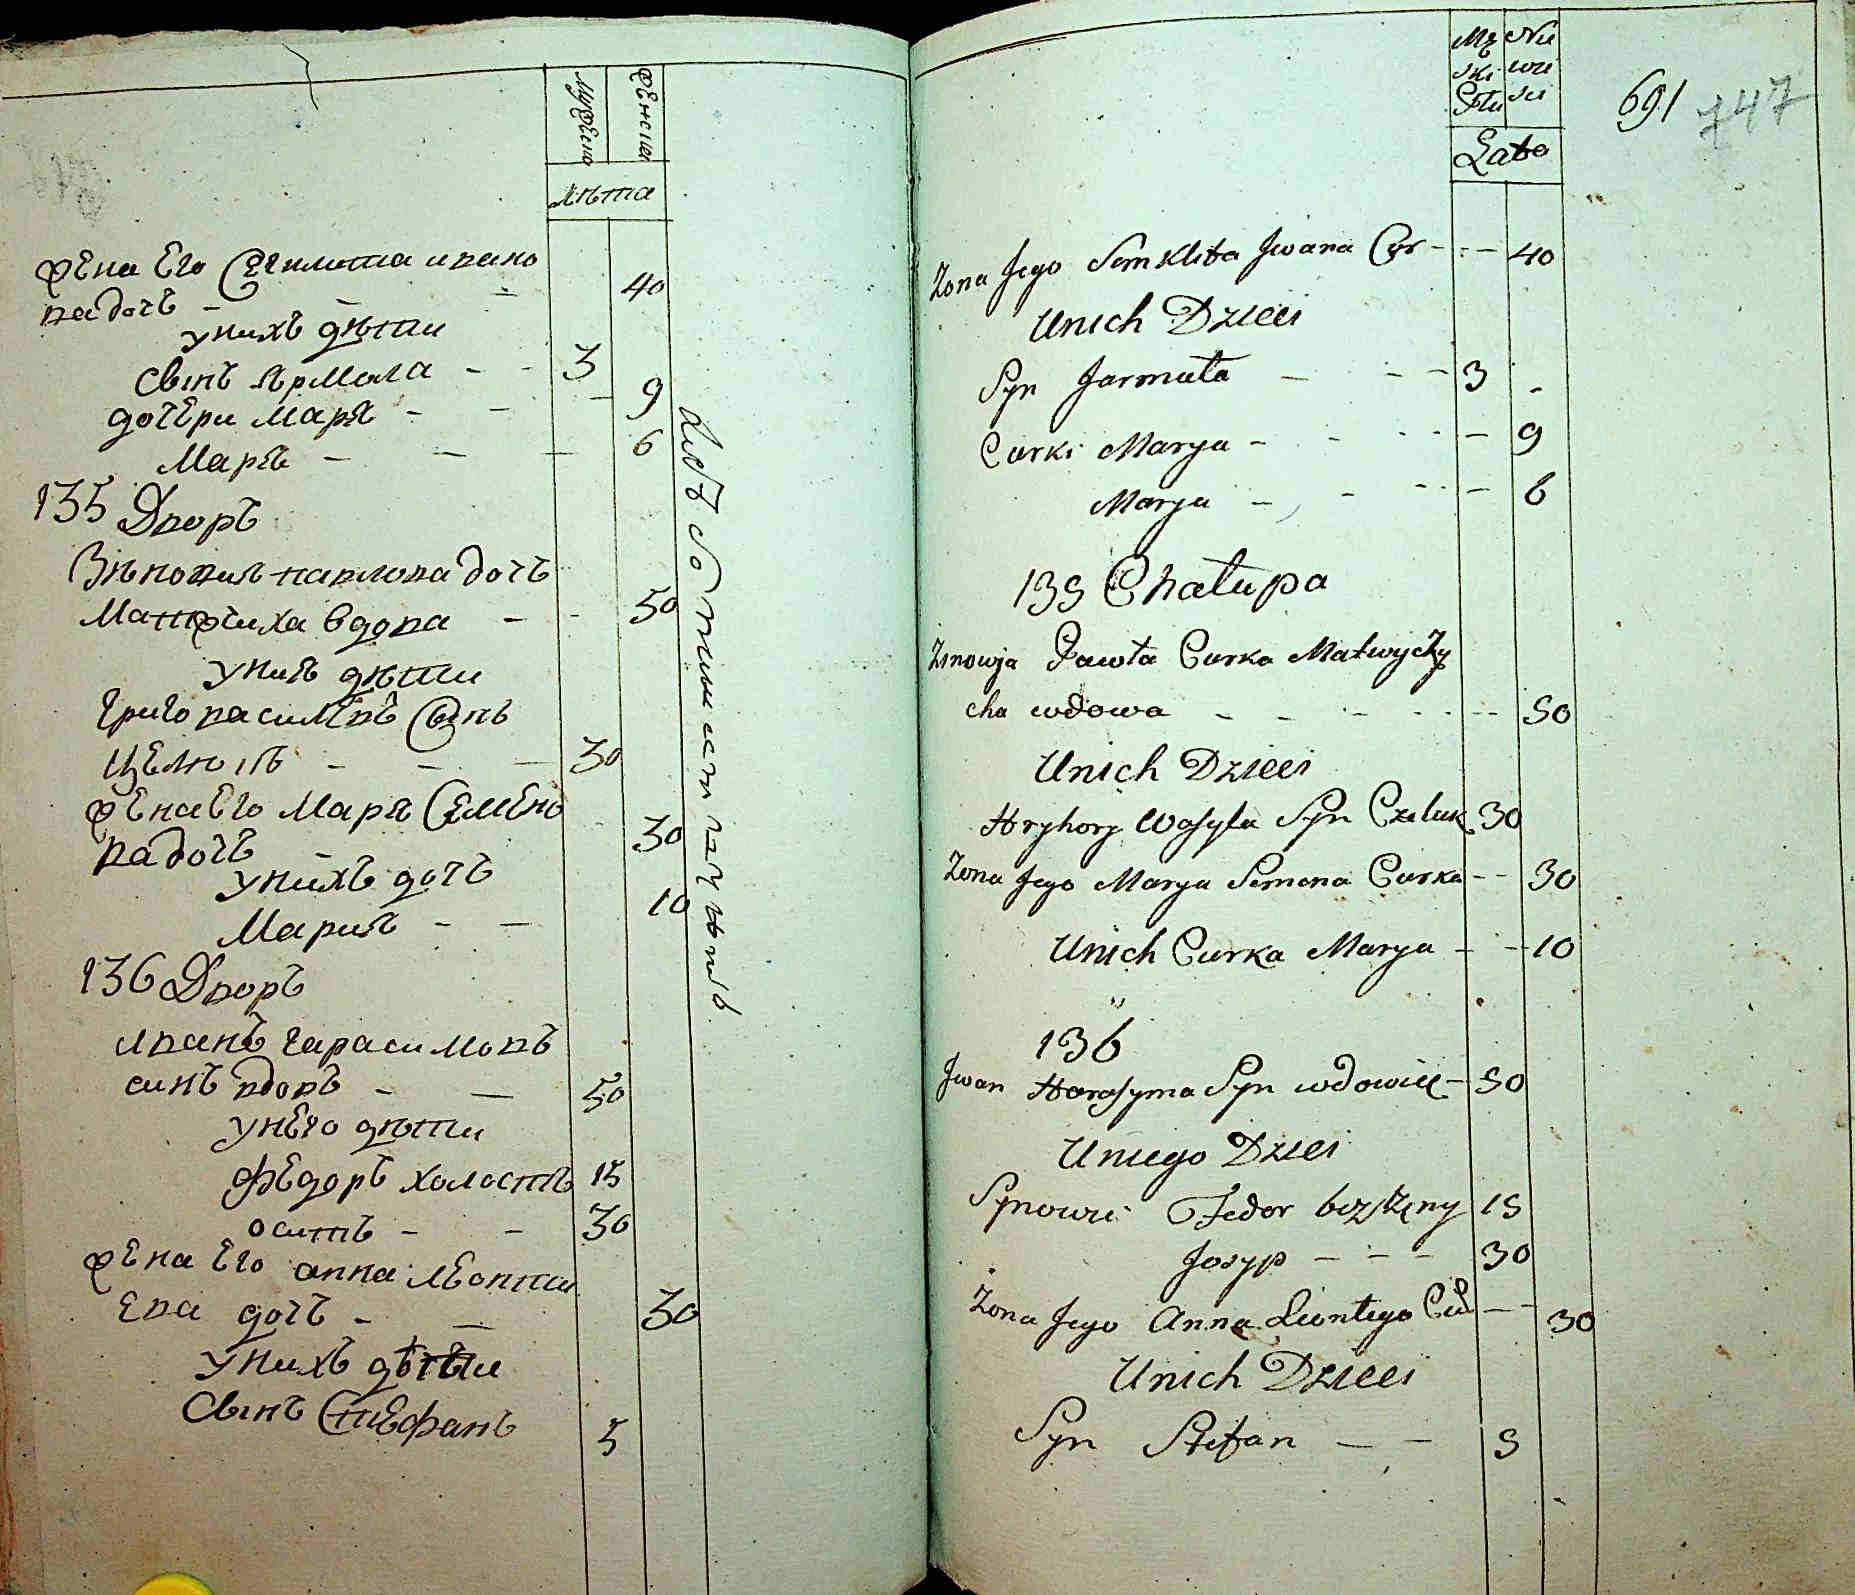 Мужеска
Женска
лѣта
жена Его Секлѣта ивано
ва дочь - - - 40
у нихъ дѣти
Сынъ Ярмола - - 3
дочери Маря - - - 9
Маря - - - 6
135 Дворъ
Зѣновия павлова дочь
Матвѣчиха вдова - - 50
у ния дѣти
Григо василѣвъ Сынъ
- - - 30
жена Его Маря Семено
ва дочь 30
у нихъ дочь
Мария - - 10
136 Дворъ
иванъ гарасимовъ
синъ вдовъ - - 50
у него дѣти
Федоръ холостъ 15
осипъ - - 30
жена Его анна леонти
ева дочь - - 30
у нихъ дѣти
Сынъ Стефанъ 5
Mę Nie
ski wie
Płci sci
691 747
Lata
Zona Jego Semklita Jwana Cor - - - 40
Unich Dzieci
Syn Jarmuła - - - 3 -
Curki Marya - - - - - 9
Marya - - - - - 6
135 Chałupa
Zinowja Pawła Curka Matwyczy
cha wdowa - - - - - - 50
Unich Dzieci
Hryhory Wasyla Syn Czeluk 30
Zona Jego Marya Semena Curka - - 30
Unich Curka Marya - - 10
136
Jwan Harasyma Syn wdowiec - 50
Uniego Dziei
Synowie Fedor bezżeny 15
Josyp - - - 30
Zona Jego Anna Leontego Cur - - 30
Unich Dzieci
Syn Stefan - - 5